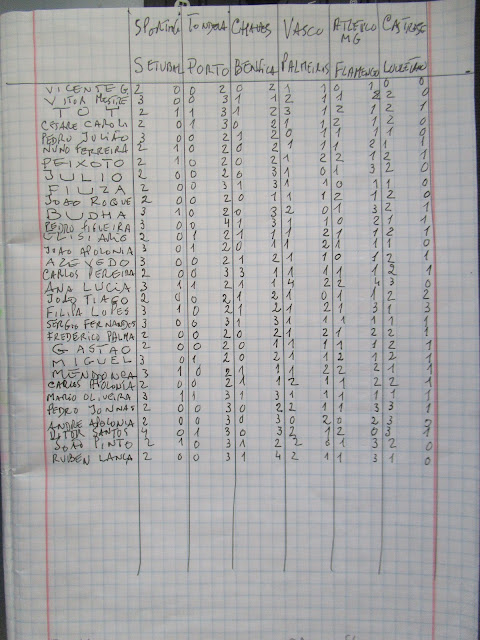 SPORTING TONDELA CHAVES VASCO ATLETICO MG CASTRENSE
SETUBAL PORTO BENFICA PALMEIRAS FLAMENGO LOURETANO
VICENTE G 2 0 0 2 0 2 1
VITOR MESTRE 3 0 0 3 1 1 2 1 1 2 2 0
TOT 2 1 1 3 1 2 3 1 1 2 1
CESARE CAROLI 2 0 1 3 0 2 1 1 1 2 1 0
PEDRO JULIÃO 3 0 0 2 1 2 0 1 1 1 1 0
NUNO FERREIRA 2 1 0 2 0 2 1 1 1 2 1 1
PEIXOTO 2 1 0 2 0 2 1 2 2 1 2 1
JULIO 2 0 0 2 0 3 1 0 1 3 2 0
FIUZA 2 0 0 3 1 3 1 1 0 1 1 0
JOÃO ROQUE 2 0 0 2 0 1 1 1 1 2 1 0
BUDHA 3 1 0 2 0 3 2 0 1 3 2 1
PEDRO FIGUEIRA 3 0 0 4 1 3 1 1 1 1 1 1
ELISIARIO 2 0 1 2 1 1 1 2 1 1 2 1
JOÃO APOLONIA 3 0 1 2 0 1 1 2 1 1 1 0
AZEVEDO 3 0 0 2 1 2 1 1 0 1 2 1
CARLOS PEREIRA 2 0 0 3 3 1 1 1 1 1 2 1
ANA LUCIA 3 1 1 2 1 1 4 2 2 4 3 0
JOÃO TIAGO 2 0 0 2 1 2 1 0 1 1 2 2
FILIPA LOPES 3 1 0 2 1 2 1 2 1 3 1 3
SERGIO FERNANDES 3 0 0 3 1 3 1 1 1 1 1 1
FREDERICO PALMA 2 0 0 2 0 2 1 2 1 2 2 1
GASTÃO 2 0 0 2 0 2 1 1 1 1 2 1
MIGUEL 3 0 1 2 0 2 1 1 2 1 2 1
MENDONÇA 3 1 0 2 1 1 1 2 2 1 1 1
CARLOS APOLONIA 2 0 0 2 1 1 2 1 1 2 2 1
MARIO OLIVEIRA 3 1 1 3 1 3 1 1 1 1 1 1
PEDRO JONNAS 2 0 0 3 0 2 2 1 1 3 3 1
ANDRE APOLONIA 2 0 0 3 0 3 0 2 0 2 3 0
VITOR SANTOS 4 0 1 3 0 3 2 1 2 0 3 1
JOÃO PINTO 2 1 0 3 1 2 2 0 1 3 2 0
RUBEN LANÇA 2 0 0 3 1 4 2 1 1 3 1 0